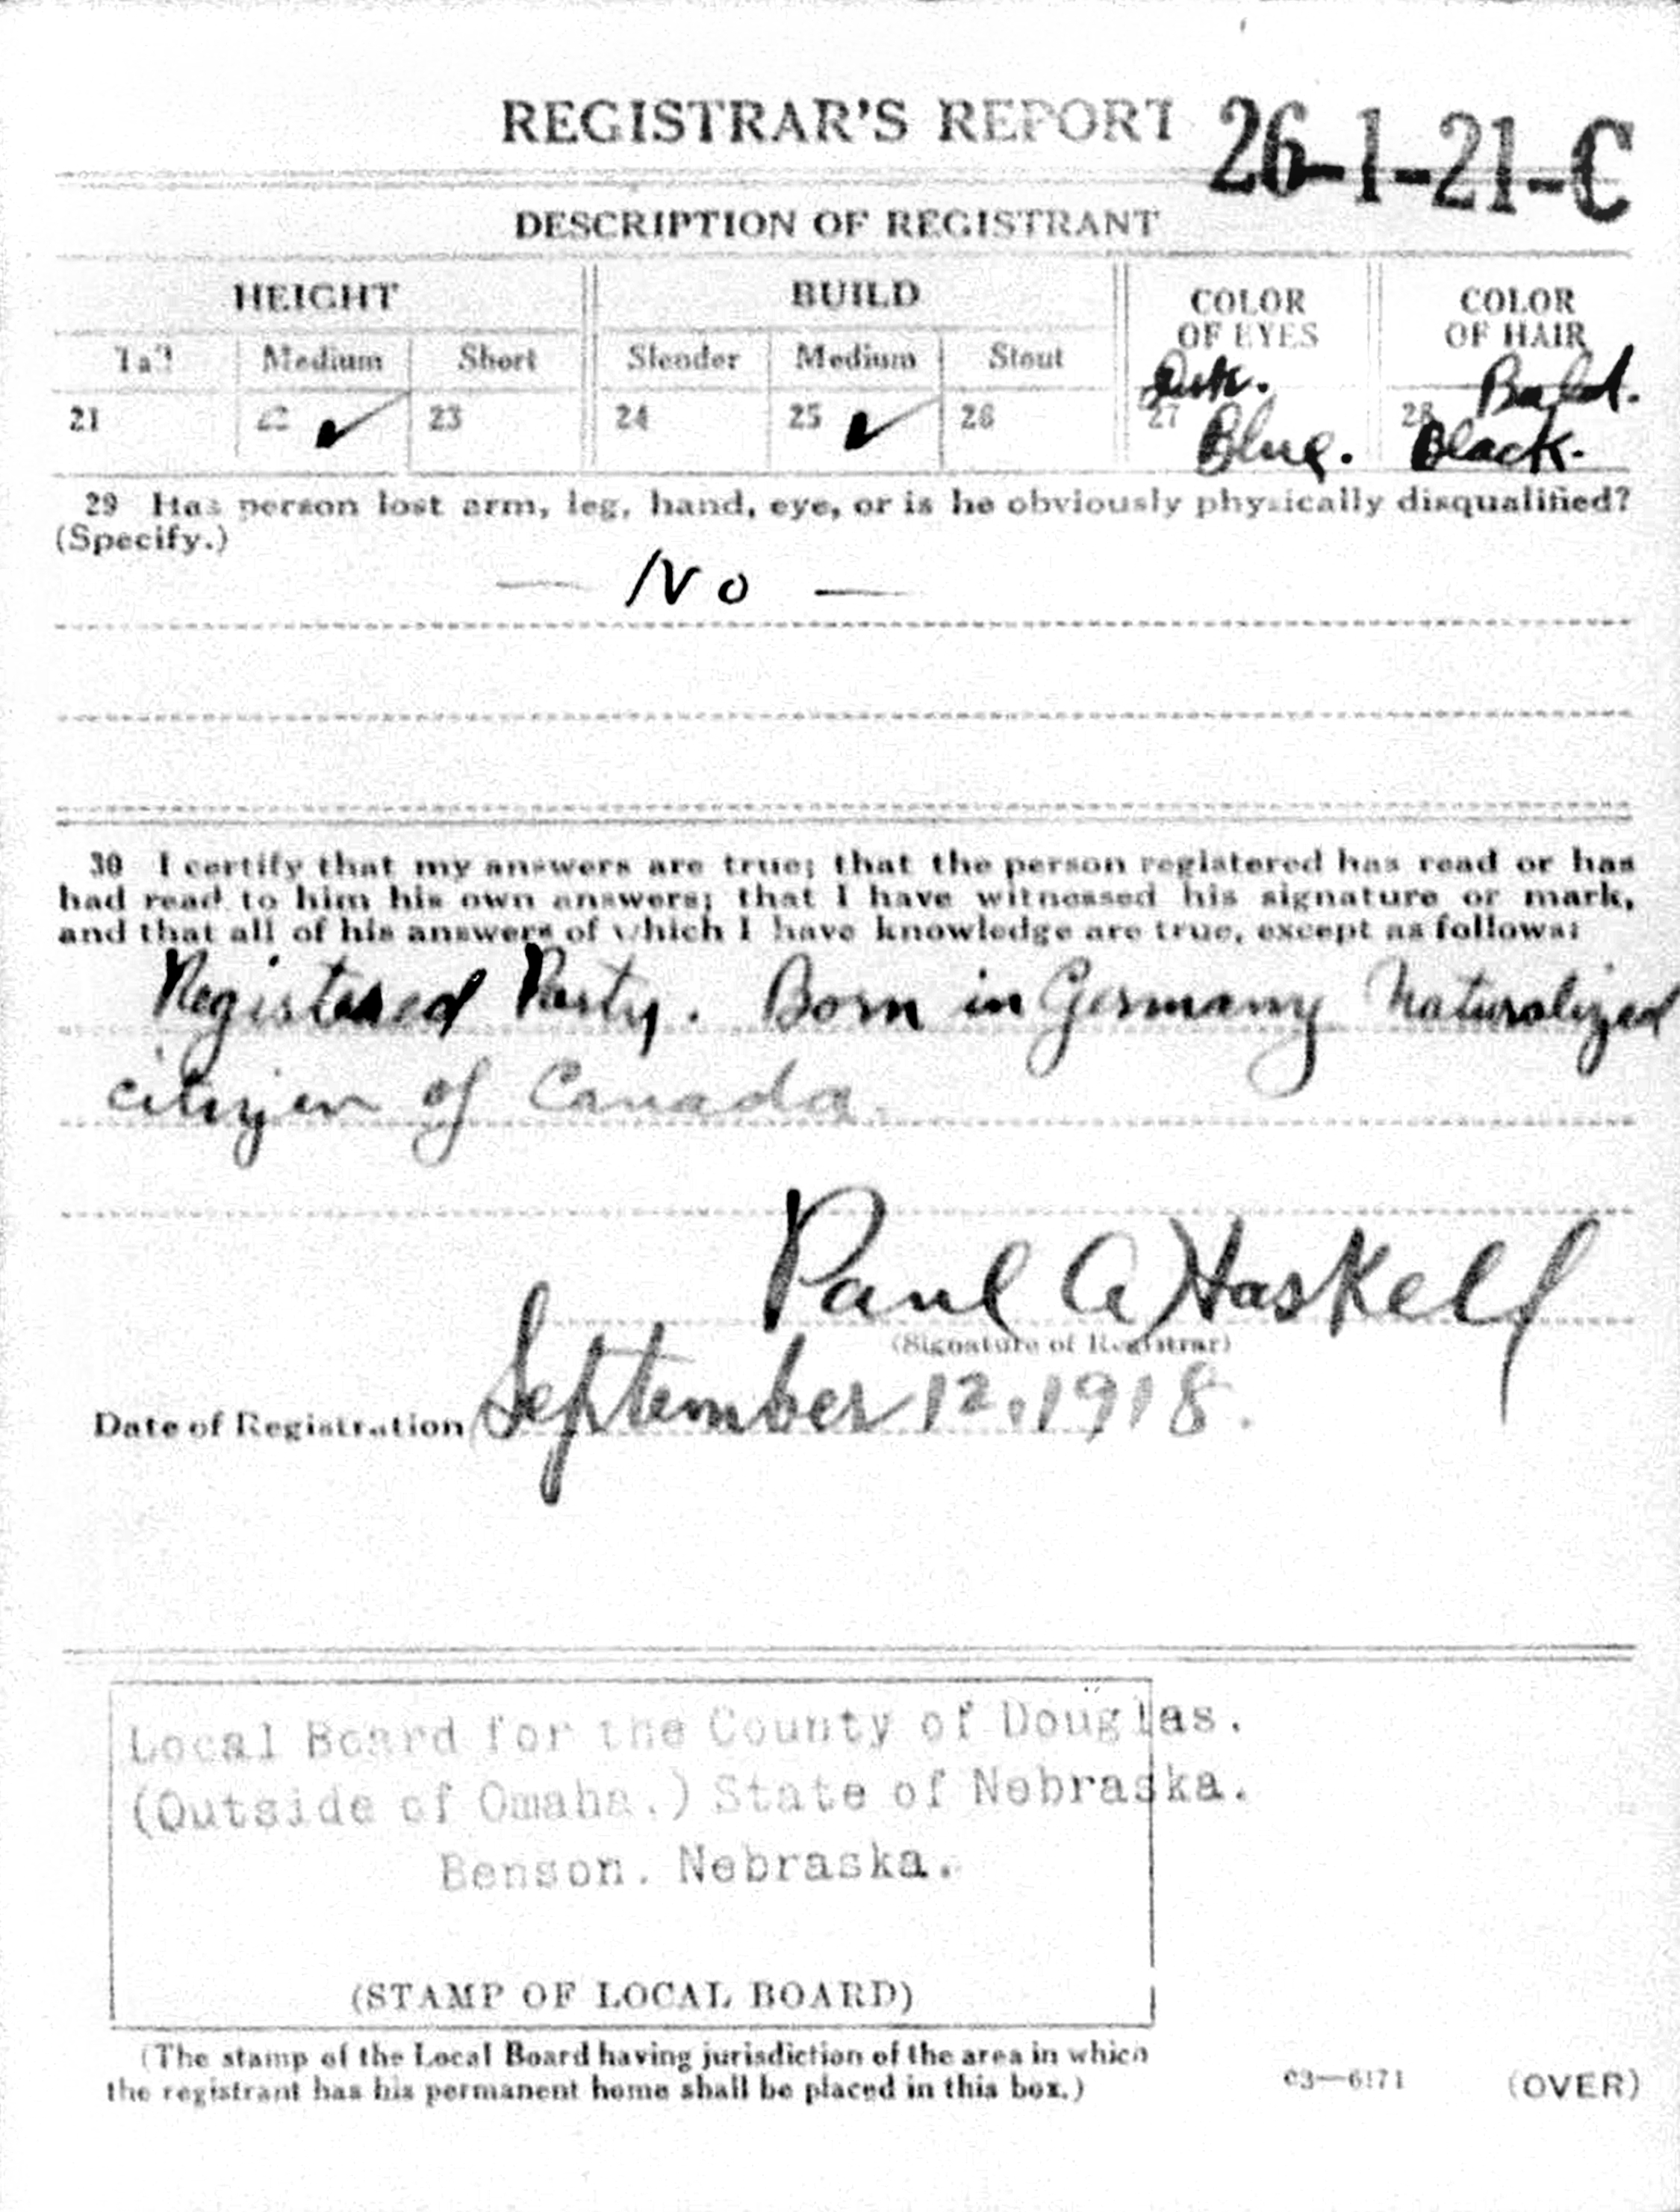 REGISTRAR'S REPORT 26-1-21-C
DESCRIPTION OF REGISTRANT
HEIGHT BUILD COLOR OF EYES COLOR OF HAIR
Tall Medium Short Slender Medium Stout Dark. Bald.
21 22 ✓ 23 24 25 ✓ 26 27 Blue. 28 Black.
29 Has person lost arm, leg, hand, eye, or is he obviously physically disqualified?
(Specify.)
— No —
30 I certify that my answers are true; that the person registered has read or has
had read to him his own answers; that I have witnessed his signature or mark,
and that all of his answers of which I have knowledge are true, except as follows:
Registered Party. Born in Germany Naturalized
citizen of Canada.
Paul A Haskell
(Signature of Registrar)
Date of Registration September 12, 1918.
Local Board for the County of Douglas.
(Outside of Omaha.) State of Nebraska.
Benson. Nebraska.
(STAMP OF LOCAL BOARD)
(The stamp of the Local Board having jurisdiction of the area in which
the registrant has his permanent home shall be placed in this box.)
03—6171 (OVER)